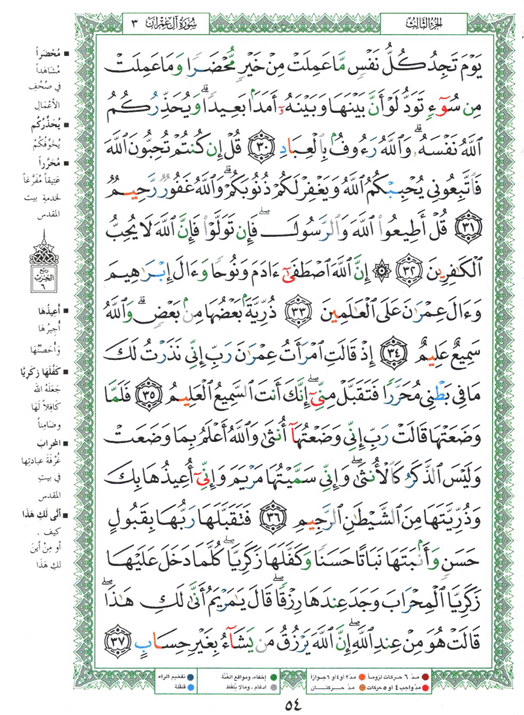 الجزء الثالث
سورة آل عمران ٣
يَوْمَ تَجِدُ كُلُّ نَفْسٍ مَّا عَمِلَتْ مِنْ خَيْرٍ مُّحْضَرًا وَمَا عَمِلَتْ
مِن سُوٓءٍ تَوَدُّ لَوْ أَنَّ بَيْنَهَا وَبَيْنَهُۥٓ أَمَدًۢا بَعِيدًا ۗ وَيُحَذِّرُكُمُ
ٱللَّهُ نَفْسَهُۥ ۗ وَٱللَّهُ رَءُوفٌۢ بِٱلْعِبَادِ ٣٠ قُلْ إِن كُنتُمْ تُحِبُّونَ ٱللَّهَ
فَٱتَّبِعُونِى يُحْبِبْكُمُ ٱللَّهُ وَيَغْفِرْ لَكُمْ ذُنُوبَكُمْ ۗ وَٱللَّهُ غَفُورٌ رَّحِيمٌ
٣١ قُلْ أَطِيعُوا۟ ٱللَّهَ وَٱلرَّسُولَ ۖ فَإِن تَوَلَّوْا۟ فَإِنَّ ٱللَّهَ لَا يُحِبُّ
ٱلْكَٰفِرِينَ ٣٢ ۞ إِنَّ ٱللَّهَ ٱصْطَفَىٰٓ ءَادَمَ وَنُوحًا وَءَالَ إِبْرَٰهِيمَ
وَءَالَ عِمْرَٰنَ عَلَى ٱلْعَٰلَمِينَ ٣٣ ذُرِّيَّةًۢ بَعْضُهَا مِنۢ بَعْضٍ ۗ وَٱللَّهُ
سَمِيعٌ عَلِيمٌ ٣٤ إِذْ قَالَتِ ٱمْرَأَتُ عِمْرَٰنَ رَبِّ إِنِّى نَذَرْتُ لَكَ
مَا فِى بَطْنِى مُحَرَّرًا فَتَقَبَّلْ مِنِّىٓ ۖ إِنَّكَ أَنتَ ٱلسَّمِيعُ ٱلْعَلِيمُ ٣٥ فَلَمَّا
وَضَعَتْهَا قَالَتْ رَبِّ إِنِّى وَضَعْتُهَآ أُنثَىٰ وَٱللَّهُ أَعْلَمُ بِمَا وَضَعَتْ
وَلَيْسَ ٱلذَّكَرُ كَٱلْأُنثَىٰ ۖ وَإِنِّى سَمَّيْتُهَا مَرْيَمَ وَإِنِّىٓ أُعِيذُهَا بِكَ
وَذُرِّيَّتَهَا مِنَ ٱلشَّيْطَٰنِ ٱلرَّجِيمِ ٣٦ فَتَقَبَّلَهَا رَبُّهَا بِقَبُولٍ
حَسَنٍ وَأَنۢبَتَهَا نَبَاتًا حَسَنًا وَكَفَّلَهَا زَكَرِيَّا ۖ كُلَّمَا دَخَلَ عَلَيْهَا
زَكَرِيَّا ٱلْمِحْرَابَ وَجَدَ عِندَهَا رِزْقًا ۖ قَالَ يَٰمَرْيَمُ أَنَّىٰ لَكِ هَٰذَا ۖ
قَالَتْ هُوَ مِنْ عِندِ ٱللَّهِ ۖ إِنَّ ٱللَّهَ يَرْزُقُ مَن يَشَآءُ بِغَيْرِ حِسَابٍ ٣٧
■ مُحْضَرًا
مُشَاهَدًا
في صُحُفِ
الأعْمَالِ
■ يُحَذِّرُكُم
يُخَوِّفُكُمْ
■ مُحَرَّرًا
عَتِيقًا مُفَرَّغًا
لخدمةِ بيتِ
المقدس
ربع
الحزب
٦
■ أُعِيذُهَا
أُجِيرُهَا
وَأُحَصِّنُهَا
■ كَفَّلَهَا زَكَرِيَّا
جَعَلَهُ الله
كافِلاً لَهَا
وضَامِناً
■ المِحْرَاب
غُرْفَةَ عبادتِها
في بيتِ
المقدس
■ أَنَّى لَكِ هَذَا
كيف.
أو مِنْ أينَ
لكِ هَذَا
مدّ ٦ حركات لزوماً
مدّ ٢ أو ٤ أو ٦ جوازاً
مدّ واجب ٤ أو ٥ حركات
مدّ حركتان
إخفاء، ومواقع الغنّة
ادغام، ومالا يلفظ
تفخيم الراء
قلقلة
٥٤